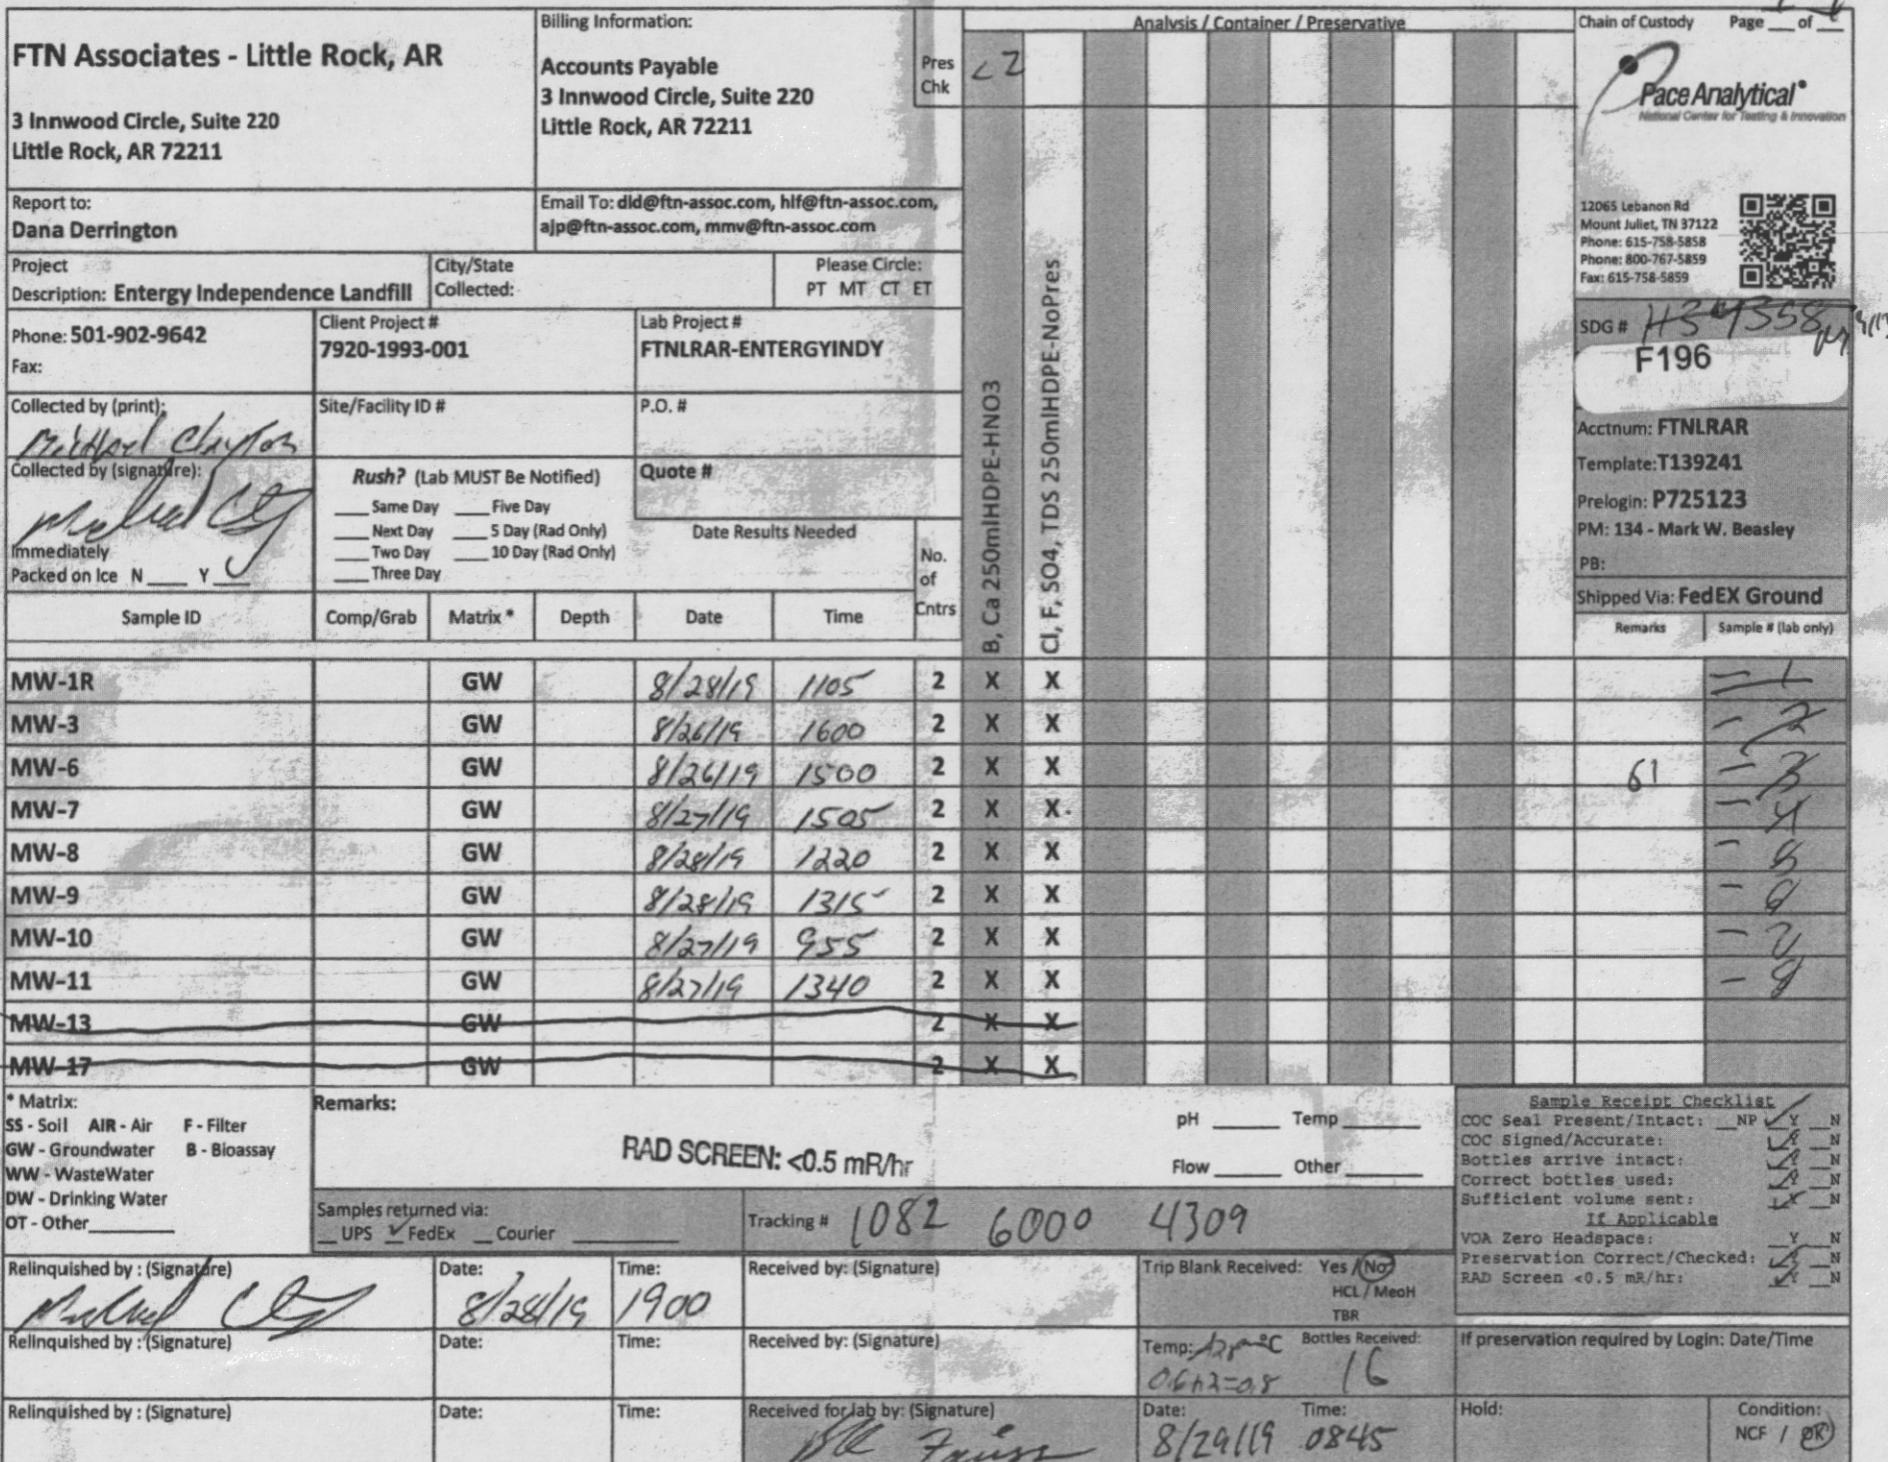 FTN Associates - Little Rock, AR
3 Innwood Circle, Suite 220
Little Rock, AR 72211
Billing Information:
Accounts Payable
3 Innwood Circle, Suite 220
Little Rock, AR 72211
Pres
Chk
<2
Analysis / Container / Preservative
Chain of Custody Page ___ of ___
Pace Analytical
National Center for Testing & Innovation
12065 Lebanon Rd
Mount Juliet, TN 37122
Phone: 615-758-5858
Phone: 800-767-5859
Fax: 615-758-5859
Report to:
Dana Derrington
Email To: dld@ftn-assoc.com, hlf@ftn-assoc.com,
ajp@ftn-assoc.com, mmv@ftn-assoc.com
Project
Description: Entergy Independence Landfill
City/State
Collected:
Please Circle:
PT MT CT ET
Phone: 501-902-9642
Fax:
Client Project #
7920-1993-001
Lab Project #
FTNLRAR-ENTERGYINDY
SDG #
F196
Collected by (print):
Michael Clayton
Site/Facility ID #
P.O. #
Acctnum: FTNLRAR
Template: T139241
Prelogin: P725123
PM: 134 - Mark W. Beasley
PB:
Shipped Via: FedEX Ground
Collected by (signature):
Immediately
Packed on Ice N ___ Y ___
Rush? (Lab MUST Be Notified)
___ Same Day ___ Five Day
___ Next Day ___ 5 Day (Rad Only)
___ Two Day ___ 10 Day (Rad Only)
___ Three Day
Quote #
Date Results Needed
No.
of
Cntrs
B, Ca 250mlHDPE-HNO3
Cl, F, SO4, TDS 250mlHDPE-NoPres
Sample ID Comp/Grab Matrix * Depth Date Time Remarks Sample # (lab only)
MW-1R GW 8/28/19 1105 2 X X - 1
MW-3 GW 8/26/19 1600 2 X X - 2
MW-6 GW 8/26/19 1500 2 X X 61 - 3
MW-7 GW 8/27/19 1505 2 X X - 4
MW-8 GW 8/28/19 1220 2 X X - 5
MW-9 GW 8/28/19 1315 2 X X - 6
MW-10 GW 8/27/19 955 2 X X - 7
MW-11 GW 8/27/19 1340 2 X X - 8
MW-13 GW 2 X X
MW-17 GW 2 X X
* Matrix:
SS - Soil AIR - Air F - Filter
GW - Groundwater B - Bioassay
WW - WasteWater
DW - Drinking Water
OT - Other
Remarks:
RAD SCREEN: <0.5 mR/hr
pH ___ Temp ___
Flow ___ Other ___
Sample Receipt Checklist
COC Seal Present/Intact: __NP ✓Y __N
COC Signed/Accurate: ✓Y __N
Bottles arrive intact: ✓Y __N
Correct bottles used: ✓Y __N
Sufficient volume sent: ✓Y __N
If Applicable
VOA Zero Headspace: __Y __N
Preservation Correct/Checked: ✓Y __N
RAD Screen <0.5 mR/hr: ✓Y __N
Samples returned via:
__ UPS ✓ FedEx __ Courier
Tracking # 1082 6000 4309
Relinquished by : (Signature)
Date:
8/28/19
Time:
1900
Received by: (Signature)
Trip Blank Received: Yes / No
HCL / MeoH
TBR
Relinquished by : (Signature)
Date:
Time:
Received by: (Signature)
Temp: °C
Bottles Received:
16
If preservation required by Login: Date/Time
Relinquished by : (Signature)
Date:
Time:
Received for lab by: (Signature)
Date:
8/29/19
Time:
0845
Hold:
Condition:
NCF / OK